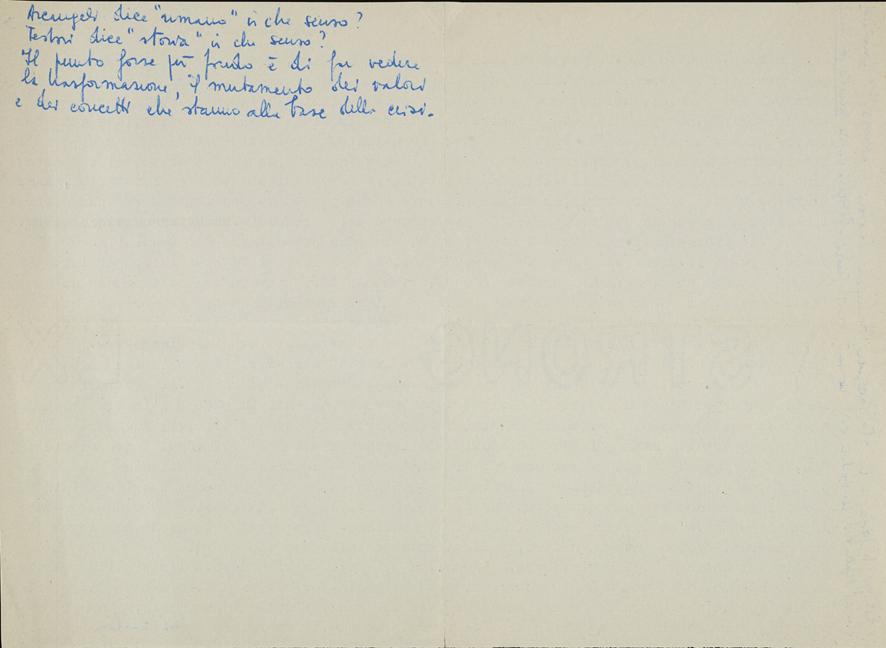 Arcangeli dice "umano" in che senso?
Testori dice "storia" in che senso?
Il punto forse più fondo è di far vedere
la trasformazione, il mutamento dei valori
e dei concetti che stanno alla base della crisi.